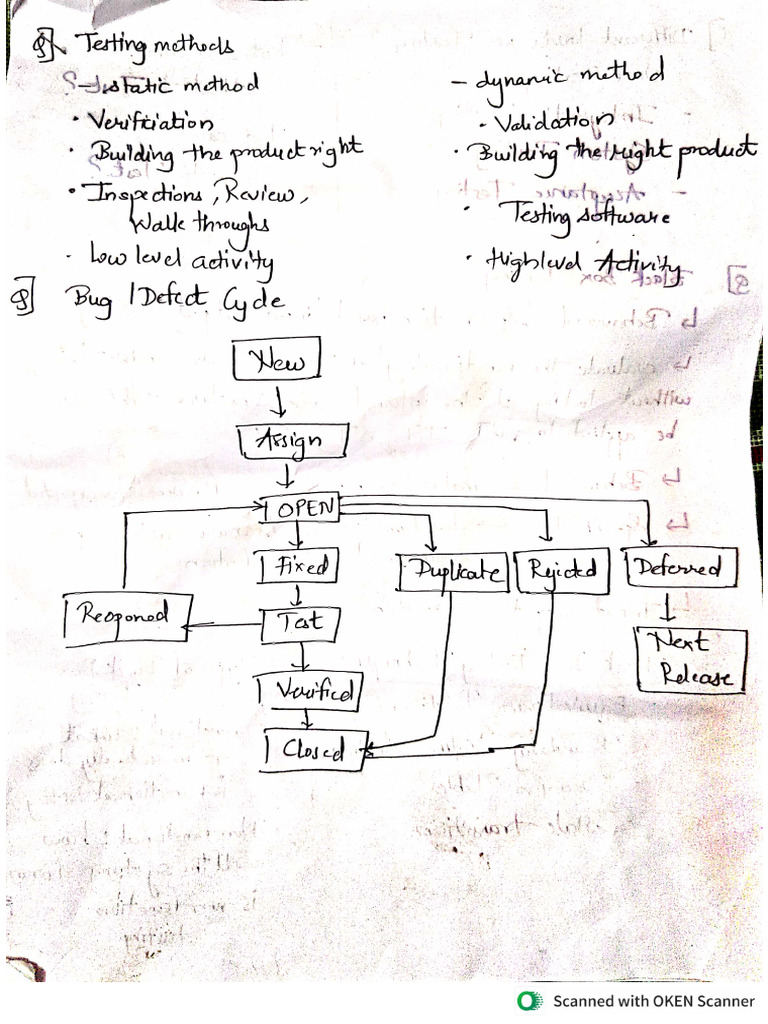 Q] Testing methods
- static method
- dynamic method
• Verification
• Validation
• Building the product right
• Building the right product
• Inspections, Review,
Walk throughs
• Testing software
• Low level activity
• High level Activity
Q] Bug / Defect Cycle
New
Assign
OPEN
Fixed
Duplicate
Rejected
Deferred
Reopened
Test
Next
Release
Verified
Closed
Scanned with OKEN Scanner